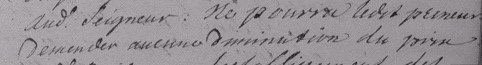 aud. Seigneur: Ne pourra ledit preneur
Demander aucune Diminution du prix